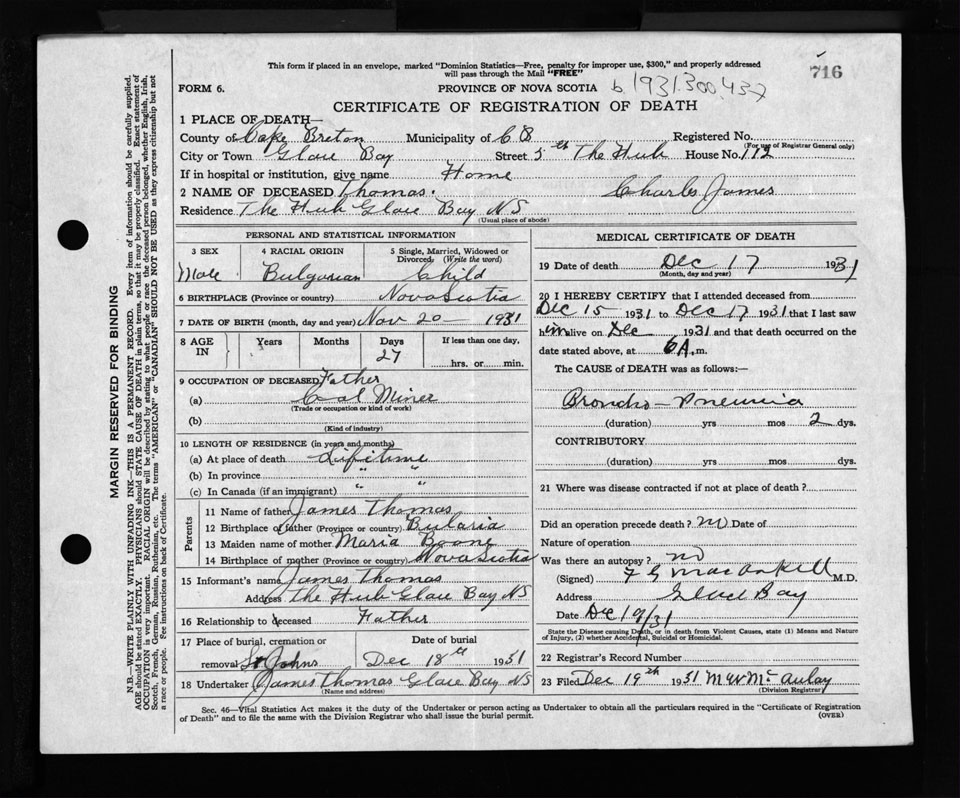 This form if placed in an envelope, marked "Dominion Statistics—Free, penalty for improper use, $300," and properly addressed
will pass through the Mail "FREE"
716
FORM 6.
PROVINCE OF NOVA SCOTIA
b 1931.300.437
CERTIFICATE OF REGISTRATION OF DEATH
1 PLACE OF DEATH—
County of Cape Breton Municipality of C B Registered No.
(For use of Registrar General only)
City or Town Glace Bay Street 5th The Hub House No. 112
If in hospital or institution, give name Home
2 NAME OF DECEASED Thomas. Charles James
Residence The Hub Glace Bay NS
(Usual place of abode)
PERSONAL AND STATISTICAL INFORMATION
3 SEX 4 RACIAL ORIGIN 5 Single, Married, Widowed or
Divorced (Write the word)
Male Bulgarian Child
6 BIRTHPLACE (Province or country) Nova Scotia
7 DATE OF BIRTH (month, day and year) Nov 20 1931
8 AGE IN Years Months Days If less than one day,
27 hrs. or min.
9 OCCUPATION OF DECEASED Father
(a) Coal Miner
(Trade or occupation or kind of work)
(b)
(Kind of industry)
10 LENGTH OF RESIDENCE (in years and months)
(a) At place of death Lifetime
(b) In province " "
(c) In Canada (if an immigrant) " "
Parents
11 Name of father James Thomas
12 Birthplace of father (Province or country) Bularia
13 Maiden name of mother Maria Boone
14 Birthplace of mother (Province or country) Nova Scotia
15 Informant's name James Thomas
Address The Hub Glace Bay NS
16 Relationship to deceased Father
17 Place of burial, cremation or Date of burial
removal St Johns Dec 18th 1931
18 Undertaker James Thomas Glace Bay NS
(Name and address)
MEDICAL CERTIFICATE OF DEATH
19 Date of death Dec 17 1931
(Month, day and year)
20 I HEREBY CERTIFY that I attended deceased from
Dec 15 1931 to Dec 17 1931 that I last saw
him alive on Dec 1931 and that death occurred on the
date stated above, at 6 A. m.
The CAUSE of DEATH was as follows:—
Broncho-Pneumia
(duration) yrs mos 2 dys.
CONTRIBUTORY
(duration) yrs mos dys.
21 Where was disease contracted if not at place of death?
Did an operation precede death? no Date of
Nature of operation
Was there an autopsy? no
(Signed) MacAskill M.D.
Address Glace Bay
Date Dec 19/31
State the Disease causing Death, or in death from Violent Causes, state (1) Means and Nature
of Injury, (2) whether Accidental, Suicidal or Homicidal.
22 Registrar's Record Number
23 Filed Dec 19th 1931 M W McAulay
(Division Registrar)
Sec. 46—Vital Statistics Act makes it the duty of the Undertaker or person acting as Undertaker to obtain all the particulars required in the "Certificate of Registration
of Death" and to file the same with the Division Registrar who shall issue the burial permit. (OVER)
MARGIN RESERVED FOR BINDING
N.B.—WRITE PLAINLY WITH UNFADING INK—THIS IS A PERMANENT RECORD. Every item of information should be carefully supplied.
AGE should be stated EXACTLY. PHYSICIANS should STATE CAUSE OF DEATH in plain terms, so that it may be properly classified. Exact statement of
OCCUPATION is very important. RACIAL ORIGIN will be described by stating to what people or race the deceased person belonged, whether English, Irish,
Scotch, French, German, Russian, Ruthenian, etc. The terms "AMERICAN" or "CANADIAN" SHOULD NOT BE USED as they express citizenship but not
a race or people. See instructions on back of Certificate.